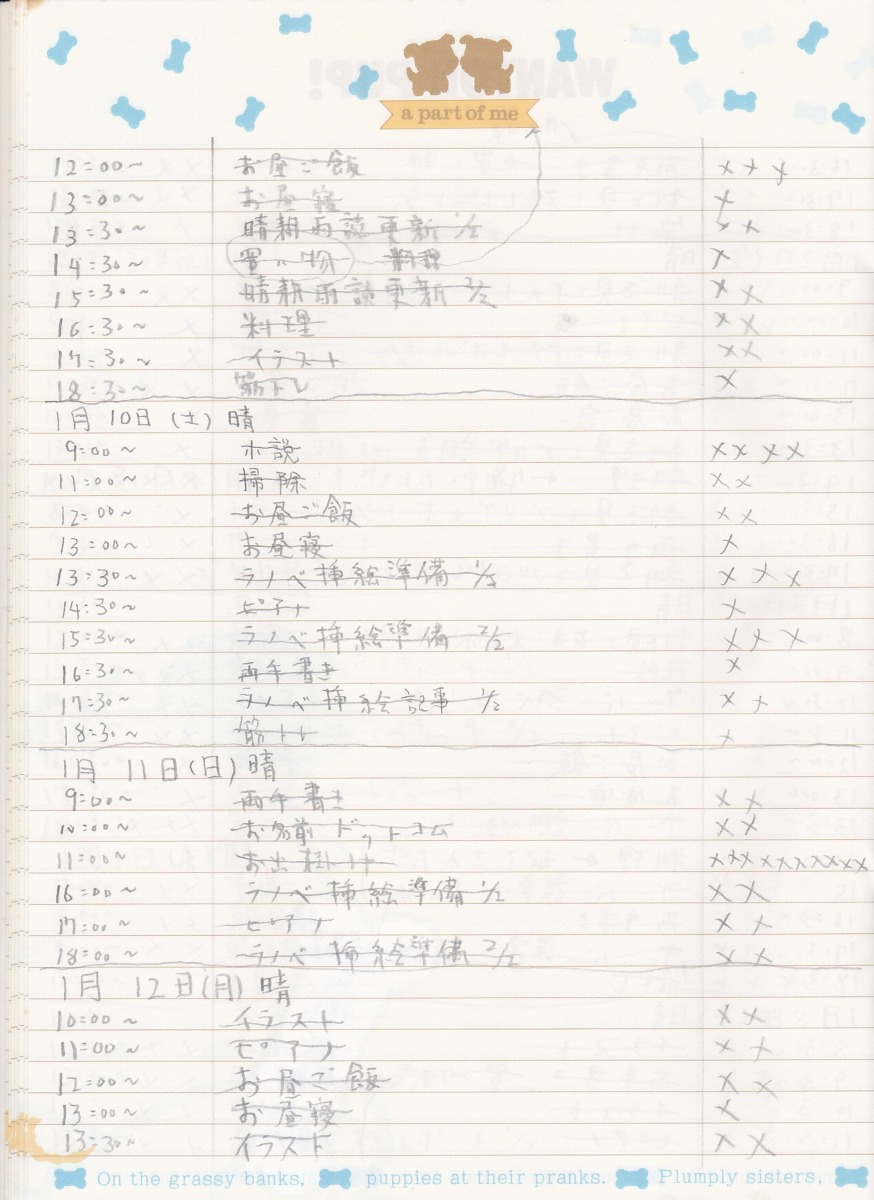 a part of me
12:00~ お昼ご飯 × × ×
13:00~ お昼寝 ×
13:30~ 晴耕雨読更新 1/2 × ×
14:30~ 買い物 料理 ×
15:30~ 晴耕雨読更新 2/2 × ×
16:30~ 料理 × ×
17:30~ イラスト × ×
18:30~ 筋トレ ×
1月10日(土)晴
9:00~ 小説 × × × ×
11:00~ 掃除 × ×
12:00~ お昼ご飯 × ×
13:00~ お昼寝 ×
13:30~ ラノベ挿絵準備 1/2 × × ×
14:30~ ピアノ ×
15:30~ ラノベ挿絵準備 2/2 × × ×
16:30~ 両手書き ×
17:30~ ラノベ挿絵記事 1/2 × ×
18:30~ 筋トレ ×
1月11日(日)晴
9:00~ 両手書き × ×
10:00~ お名前ドットコム × ×
11:00~ お出掛け × × × × × × × × × ×
16:00~ ラノベ挿絵準備 1/2 × ×
17:00~ ピアノ × ×
18:00~ ラノベ挿絵準備 2/2 × ×
1月12日(月)晴
10:00~ イラスト × ×
11:00~ ピアノ × ×
12:00~ お昼ご飯 × ×
13:00~ お昼寝 ×
13:30~ イラスト × ×
On the grassy banks, puppies at their pranks. Plumply sisters,